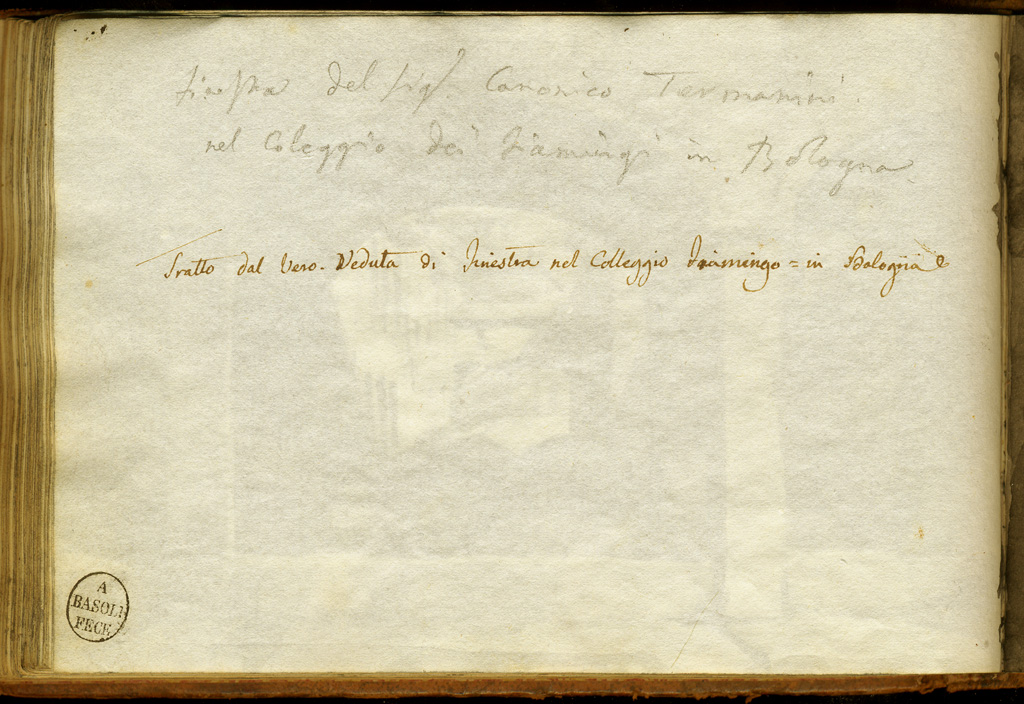 finestra del Sig.r Canonico Termanini.
nel Coleggio dei fiamingi in Bologna
Tratto dal Vero. Veduta di finestra nel Colleggio fiamingo = in Bologna
A
BASOLI
FECE